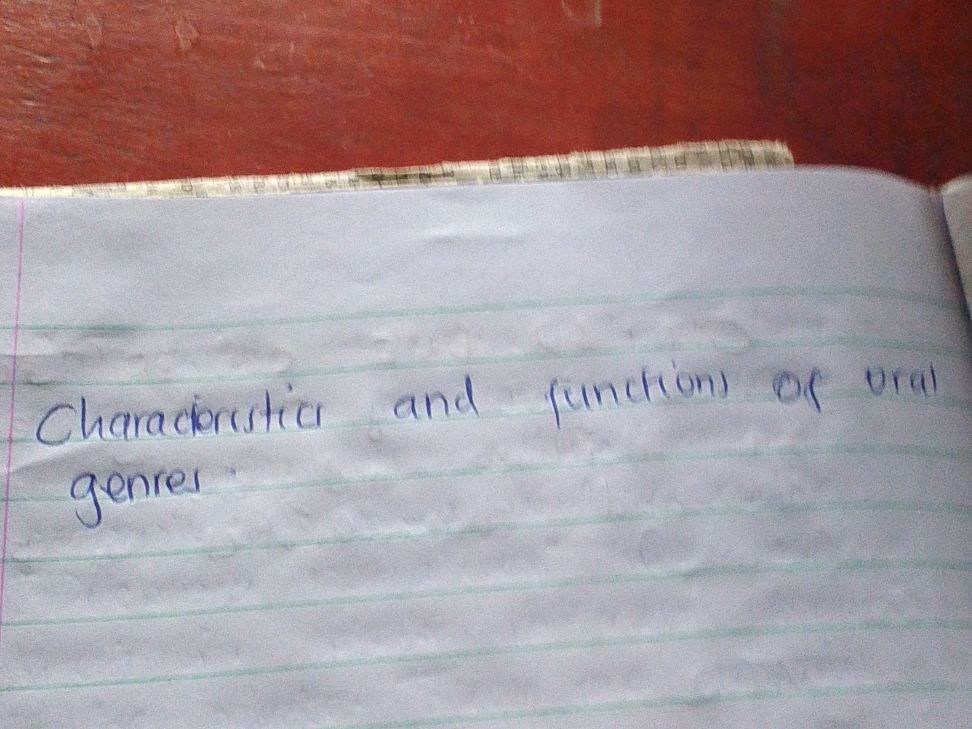 Characteristics and functions of oral
genres.